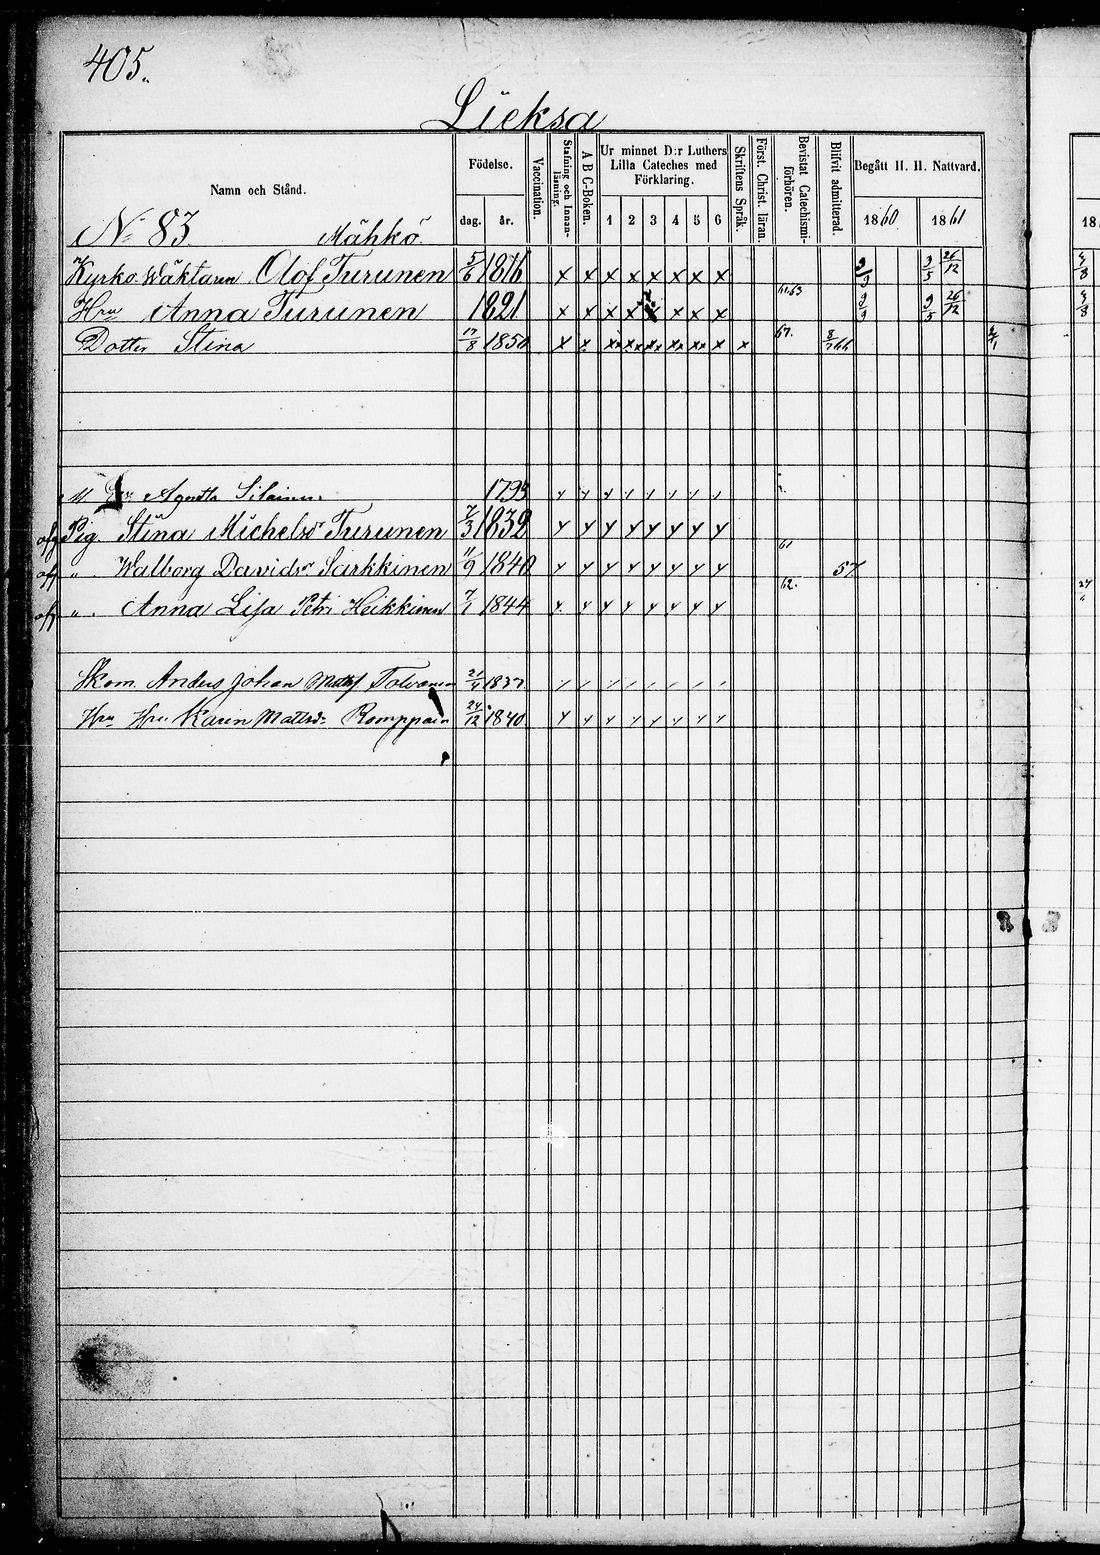 405.
Lieksa
Namn och Stånd.
Födelse.
dag. år.
Vaccination.
Stafning och Innanläsning.
A B C-Boken.
Ur minnet D:r Luthers Lilla Cateches med Förklaring.
1 2 3 4 5 6
Skriftens Språk.
Först. Christ. läran.
Bevistat Catechismiförhören.
Blifvit admitterad.
Begått H. H. Nattvard.
1860 1861
18
No 83 Mähkö.
Kyrko Wäktaren Olof Turunen 5/6 x x x x x x x x 9/9 26/12
Hru Anna Turunen 1821 x x x x x x x x 61.63 26/12
Dotter Stina 17/8 1850 x x x x x x x x x 67.
M Agneta Silainen 1793
Pig. Stina Michelsdr Turunen 7/3 1832
" Walborg Davidsdr Sarkkinen 11/9 1840 61 57
" Anna Lisa Petri Heikkinen 7/1 1844 62.
Skom. Anders Johan Matts Tolvanen 21/4 1837
Hru Karin Mattsdr Romppain 24/12 1840